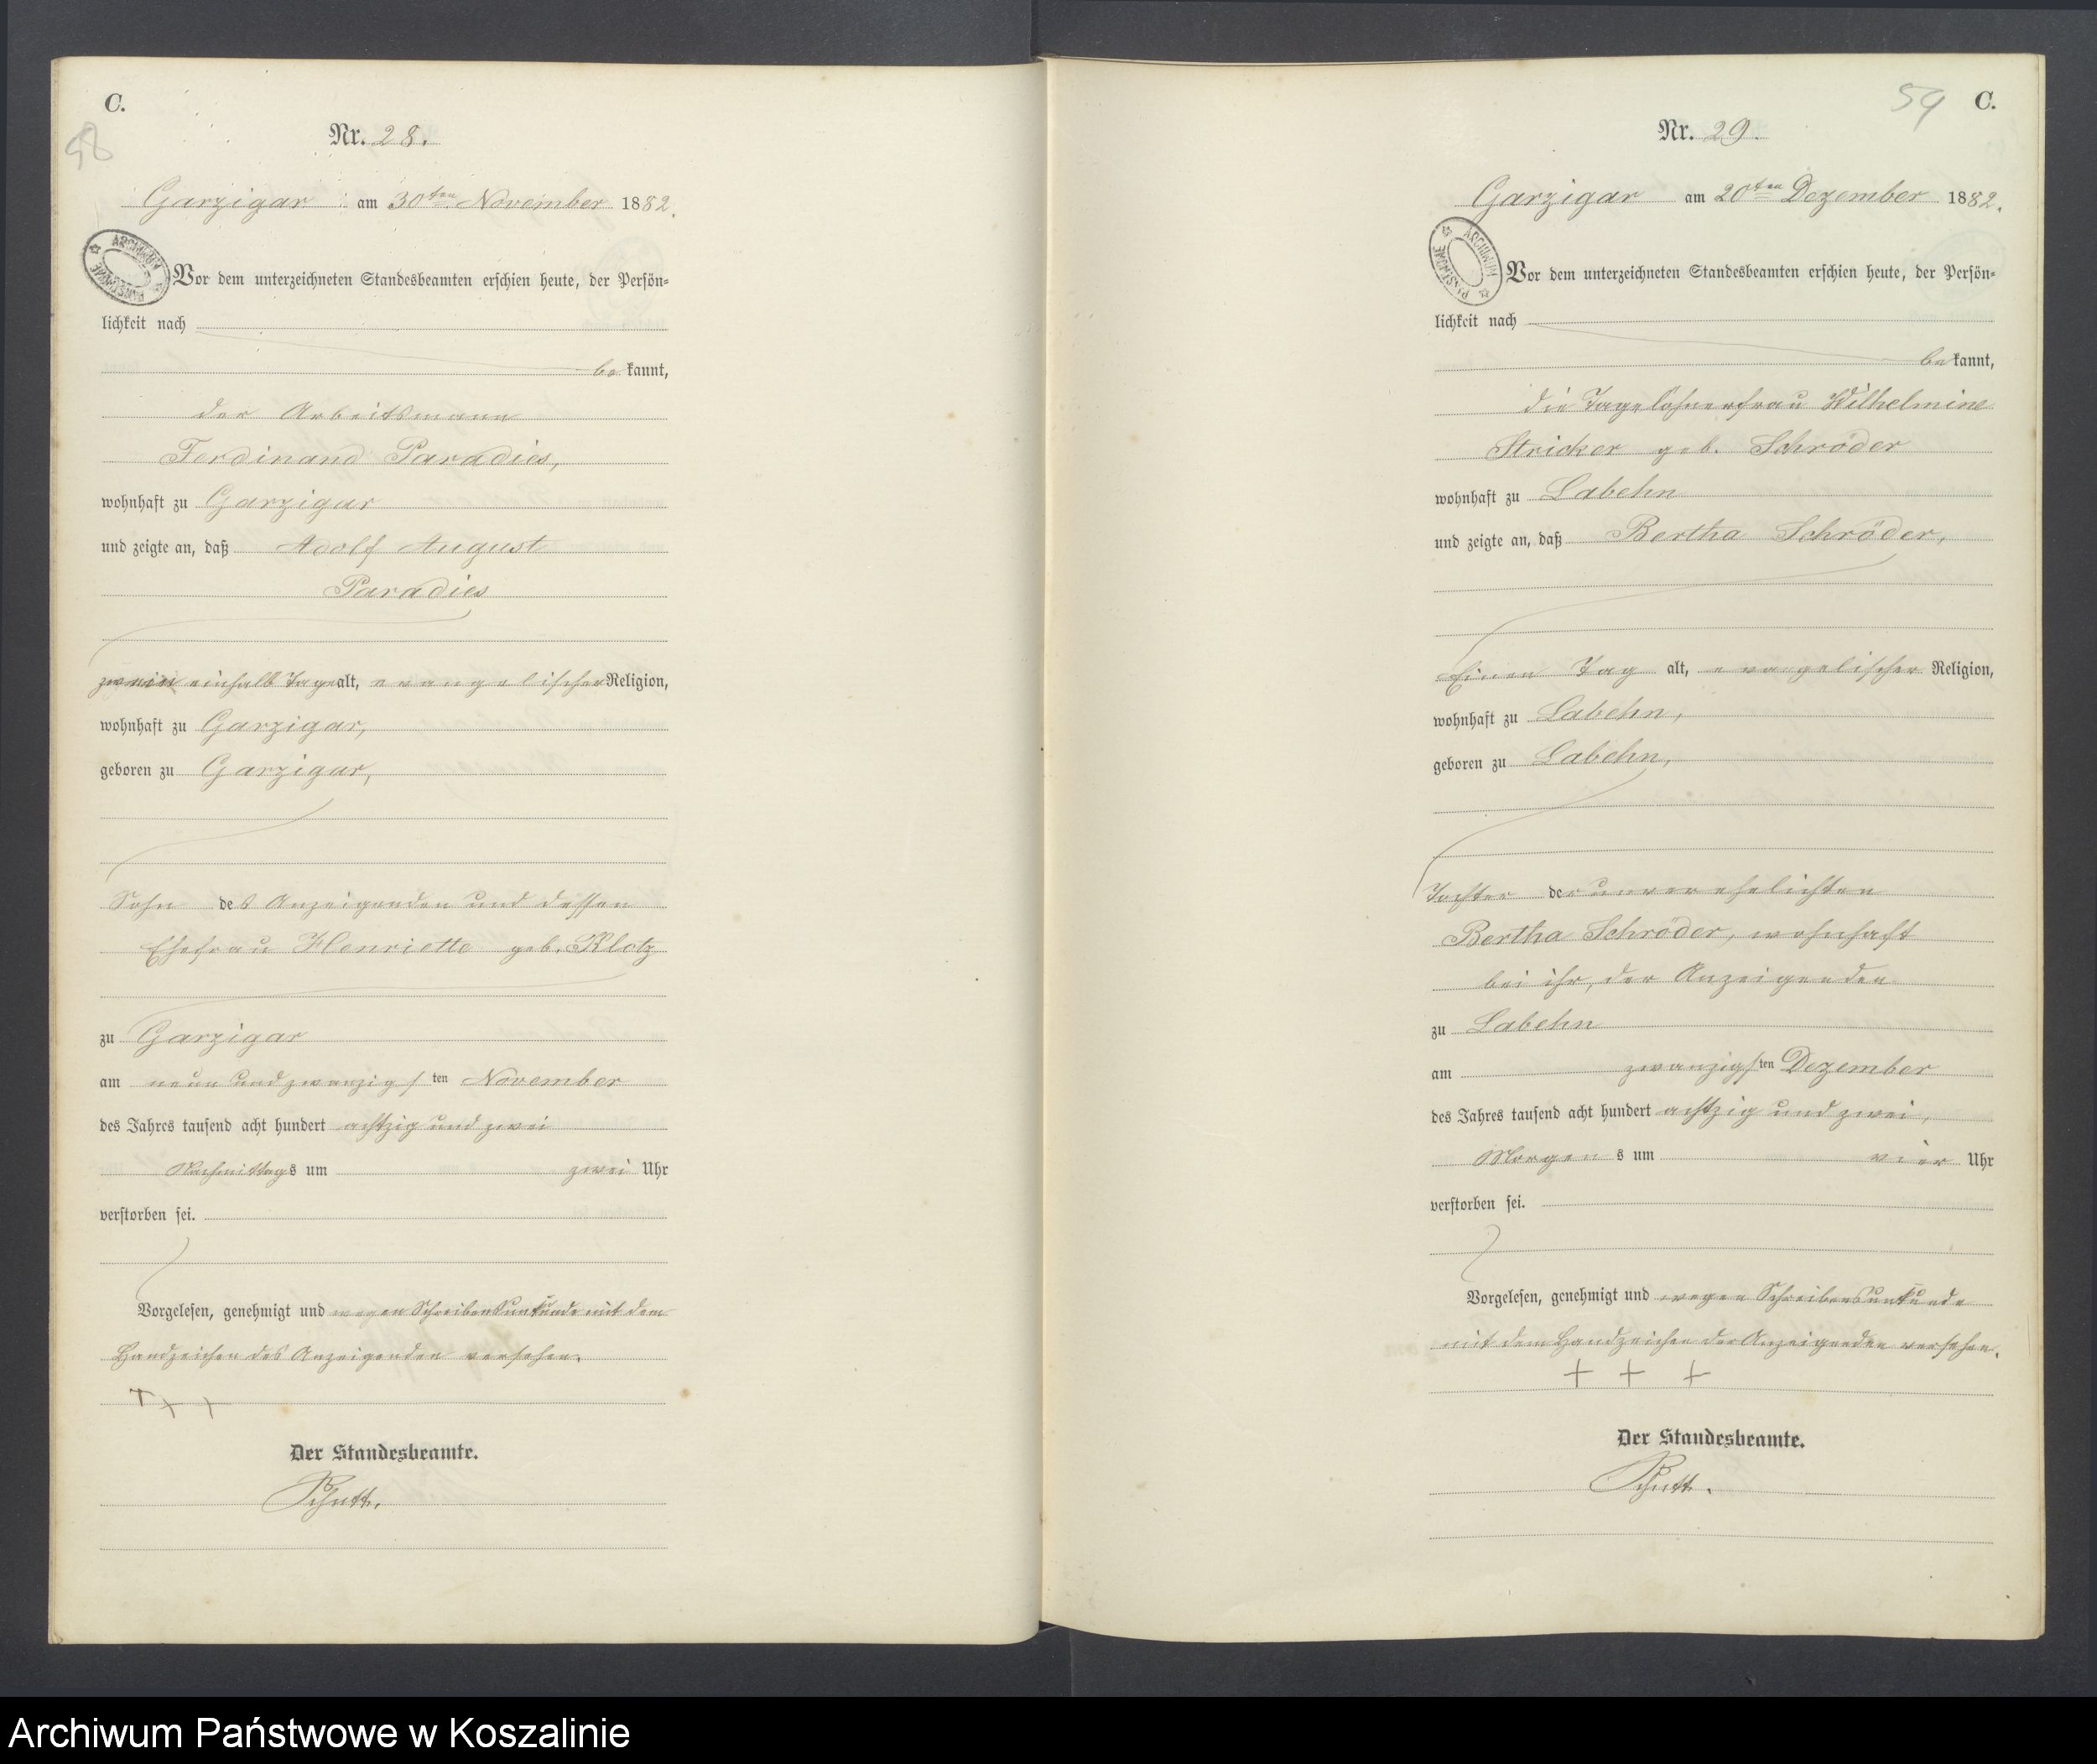 C.
58
Nr. 28.
Garzigar am 30ten November 1882.
ARCHIWUM PAŃSTWOWE
Vor dem unterzeichneten Standesbeamten erschien heute, der Persön-
lichkeit nach
bekannt,
der Arbeitsmann
Ferdinand Paradies,
wohnhaft zu Garzigar
und zeigte an, daß Adolf August
Paradies
einhalb Tage alt, evangelischer Religion,
wohnhaft zu Garzigar,
geboren zu Garzigar,
Sohn des Anzeigenden und dessen
Ehefrau Henriette geb. Klotz
zu Garzigar
am neun und zwanzigsten November
des Jahres tausend acht hundert achtzig und zwei
Nachmittags um zwei Uhr
verstorben sei.
Vorgelesen, genehmigt und wegen Schreibensunkunde mit dem
Handzeichen des Anzeigenden versehen.
+ + +
Der Standesbeamte.
59
C.
Nr. 29.
Garzigar am 20ten Dezember 1882.
ARCHIWUM PAŃSTWOWE
Vor dem unterzeichneten Standesbeamten erschien heute, der Persön-
lichkeit nach
bekannt,
die Tagelöhnerfrau Wilhelmine
Stricker geb. Schröder
wohnhaft zu Labehn
und zeigte an, daß Bertha Schröder,
Einen Tag alt, evangelischer Religion,
wohnhaft zu Labehn,
geboren zu Labehn,
Tochter der unverehelichten
Bertha Schröder, wohnhaft
bei ihr, der Anzeigenden
zu Labehn
am zwanzigsten Dezember
des Jahres tausend acht hundert achtzig und zwei,
Morgens um vier Uhr
verstorben sei.
Vorgelesen, genehmigt und wegen Schreibensunkunde
mit dem Handzeichen der Anzeigenden versehen.
+ + +
Der Standesbeamte.
Archiwum Państwowe w Koszalinie